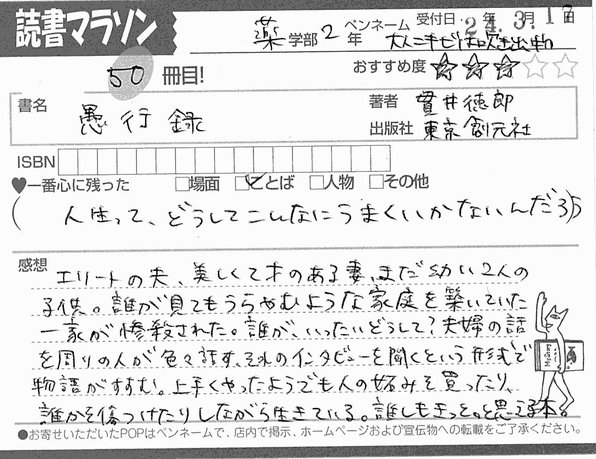 読書マラソン
薬学部2年
ペンネーム
大人ニキビは吹き出物
受付日・24年3月17日
50冊目!
おすすめ度 ★★★☆☆
書名 愚行録
著者 貫井徳郎
出版社 東京創元社
ISBN
♥一番心に残った □場面 ☑ことば □人物 □その他
(人生って、どうしてこんなにうまくいかないんだろう)
感想
エリートの夫、美しくて才のある妻、まだ幼い2人の
子供。誰が見てもうらやむような家庭を築いていた
一家が惨殺された。誰が、いったいどうして?夫婦の話
を周りの人が色々話す、そのインタビューを聞くという形式で
物語がすすむ。上手くやったようでも人の妬みを買ったり、
誰かを傷つけたりしながら生きている。誰しもきっと。と思える本。
●お寄せいただいたPOPはペンネームで、店内で掲示、ホームページおよび宣伝物への転載をご了承ください。